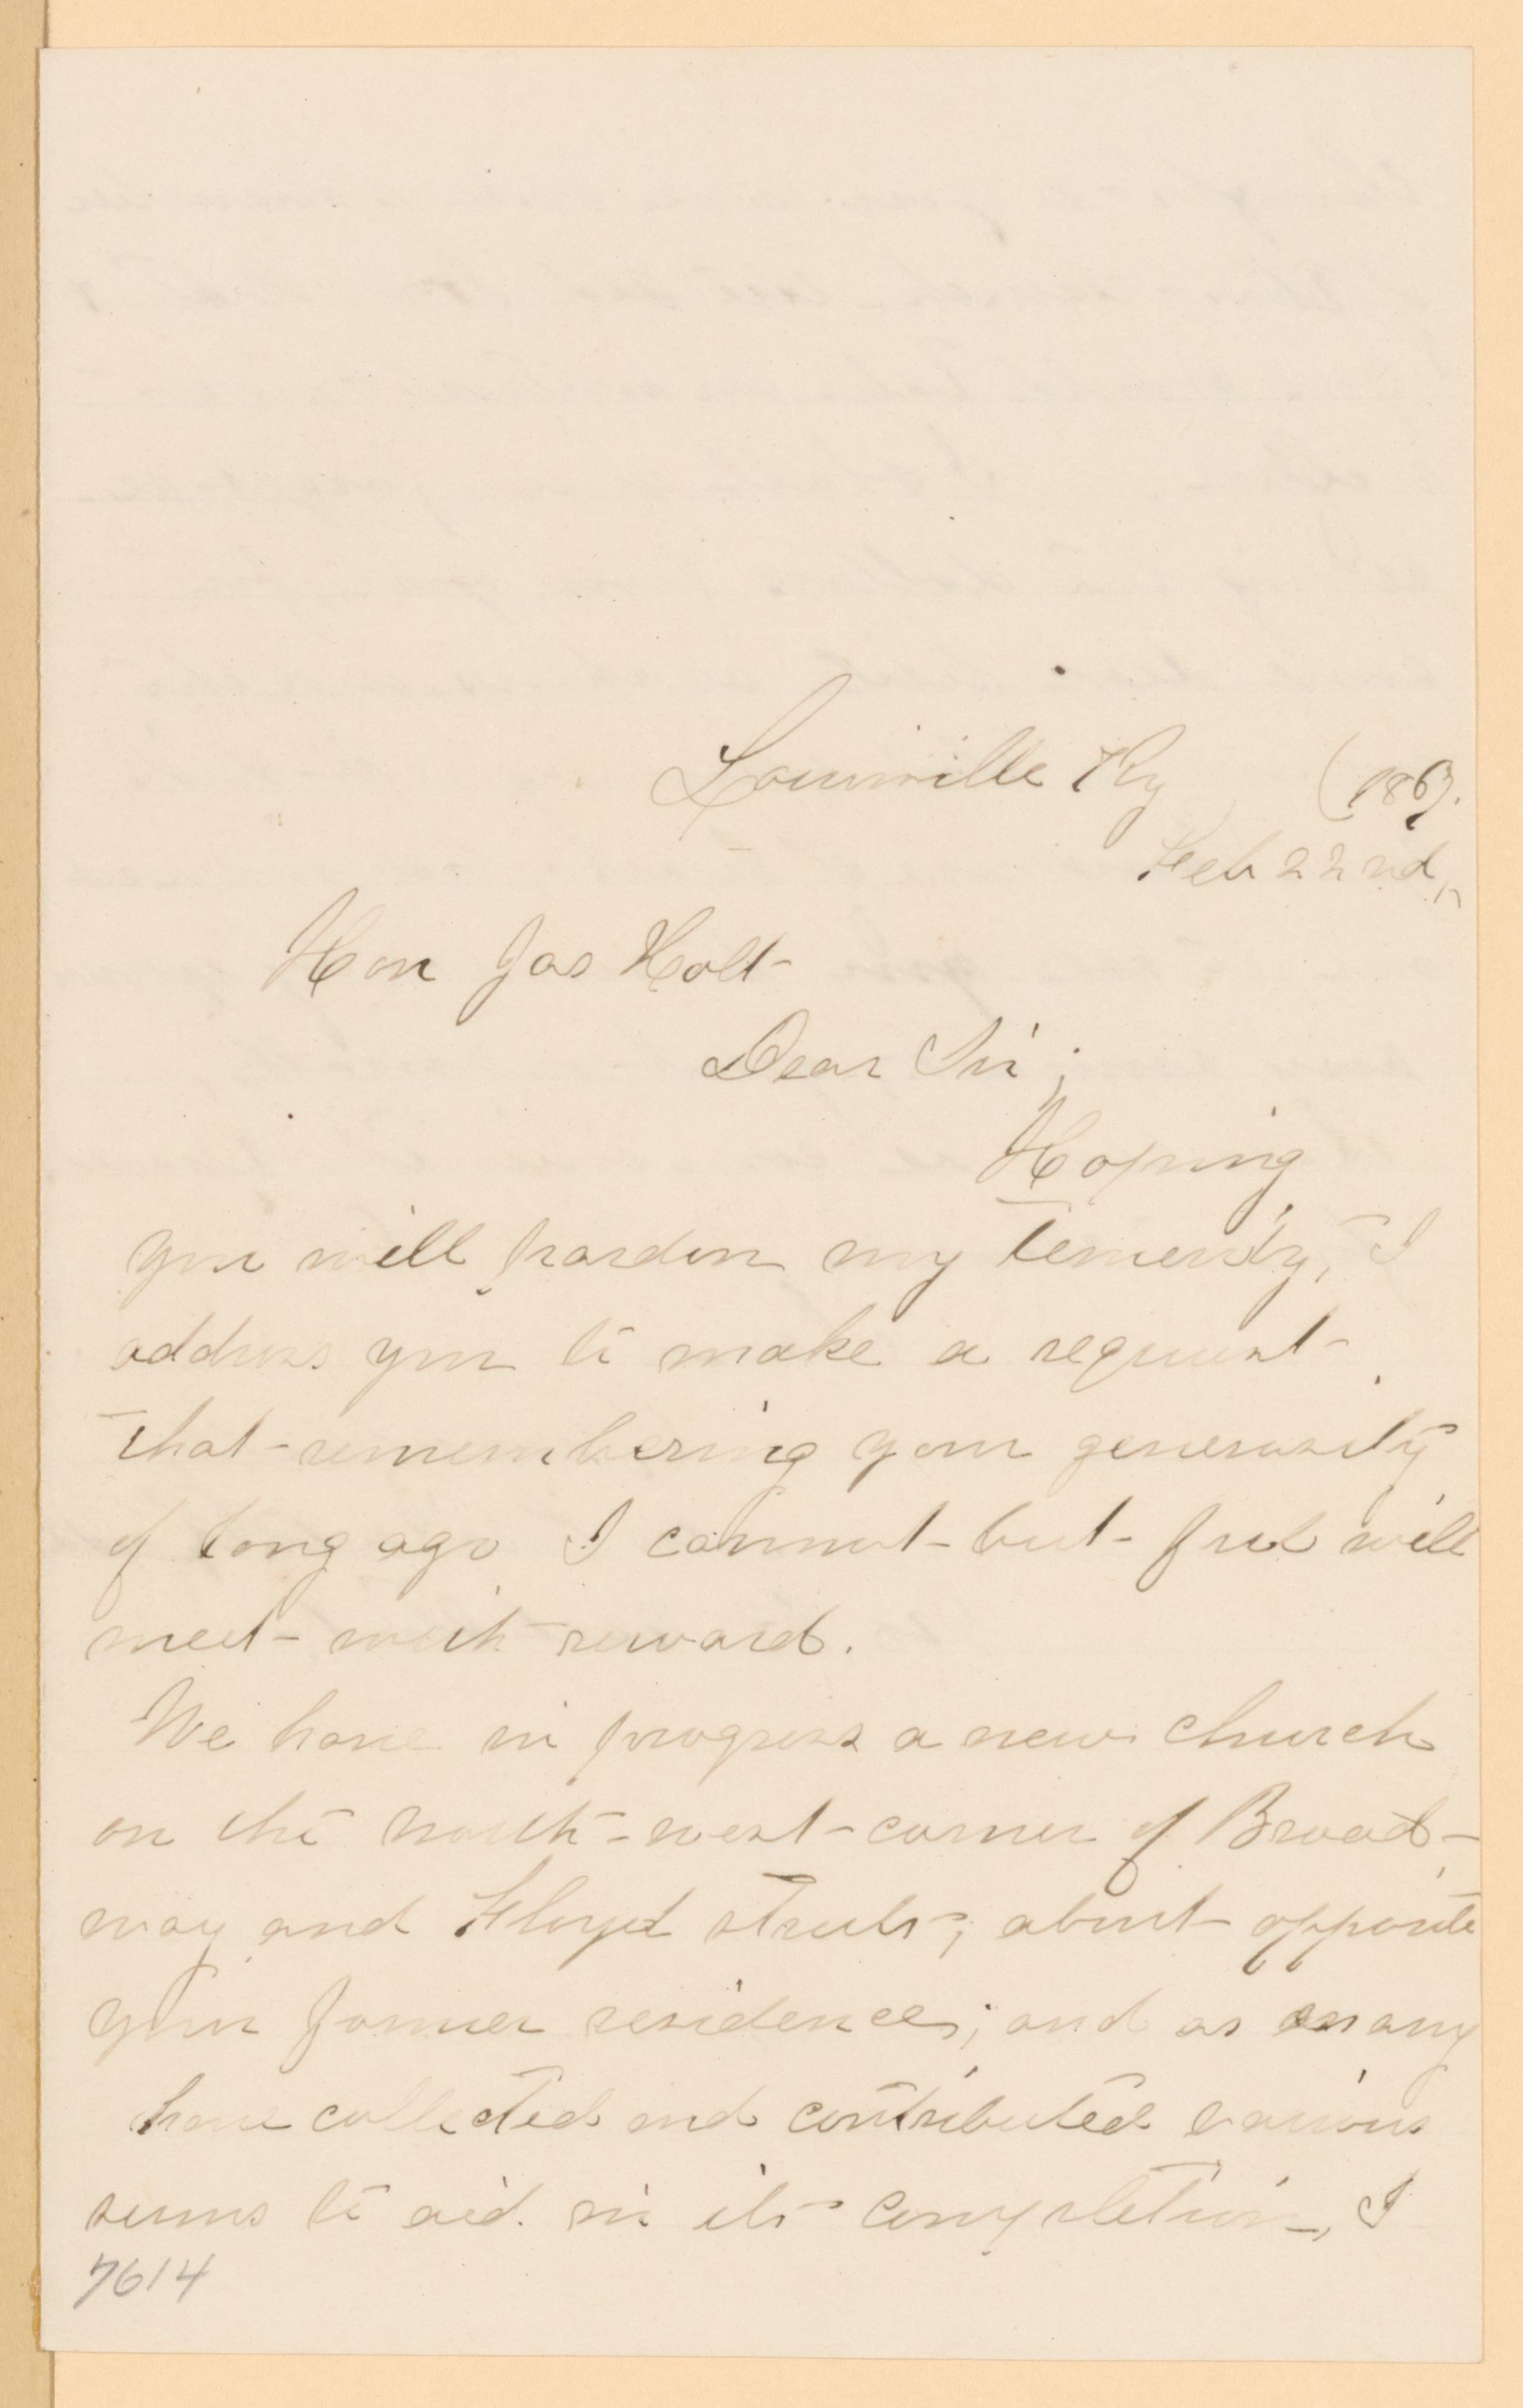 Louisville Ky (1867.
Feb 22nd,
Hon Jas Holt
Dear Sir;
Hoping
you will pardon my temerity, I
address you to make a request
that remembering your generosity
of long ago I cannot but feel will
meet with reward.
We have in progress a new church
on the north-west-corner of Broad-
way and Floyd streets; about opposite
your former residence; and as many
have collected and contributed various
sums to aid in its completion, I
7614